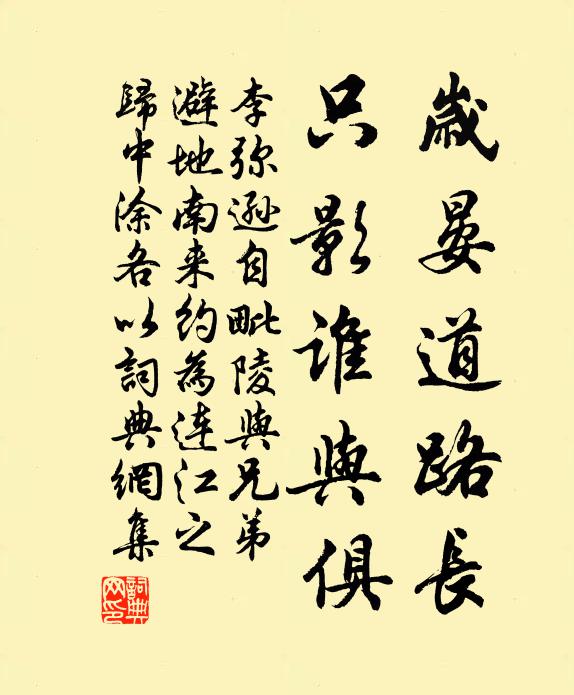 歲晏道路長
只影誰與俱
李弥遜自毗陵與兄弟
避地南来約為連江之
歸中涂各以詞典網集
詞典网印